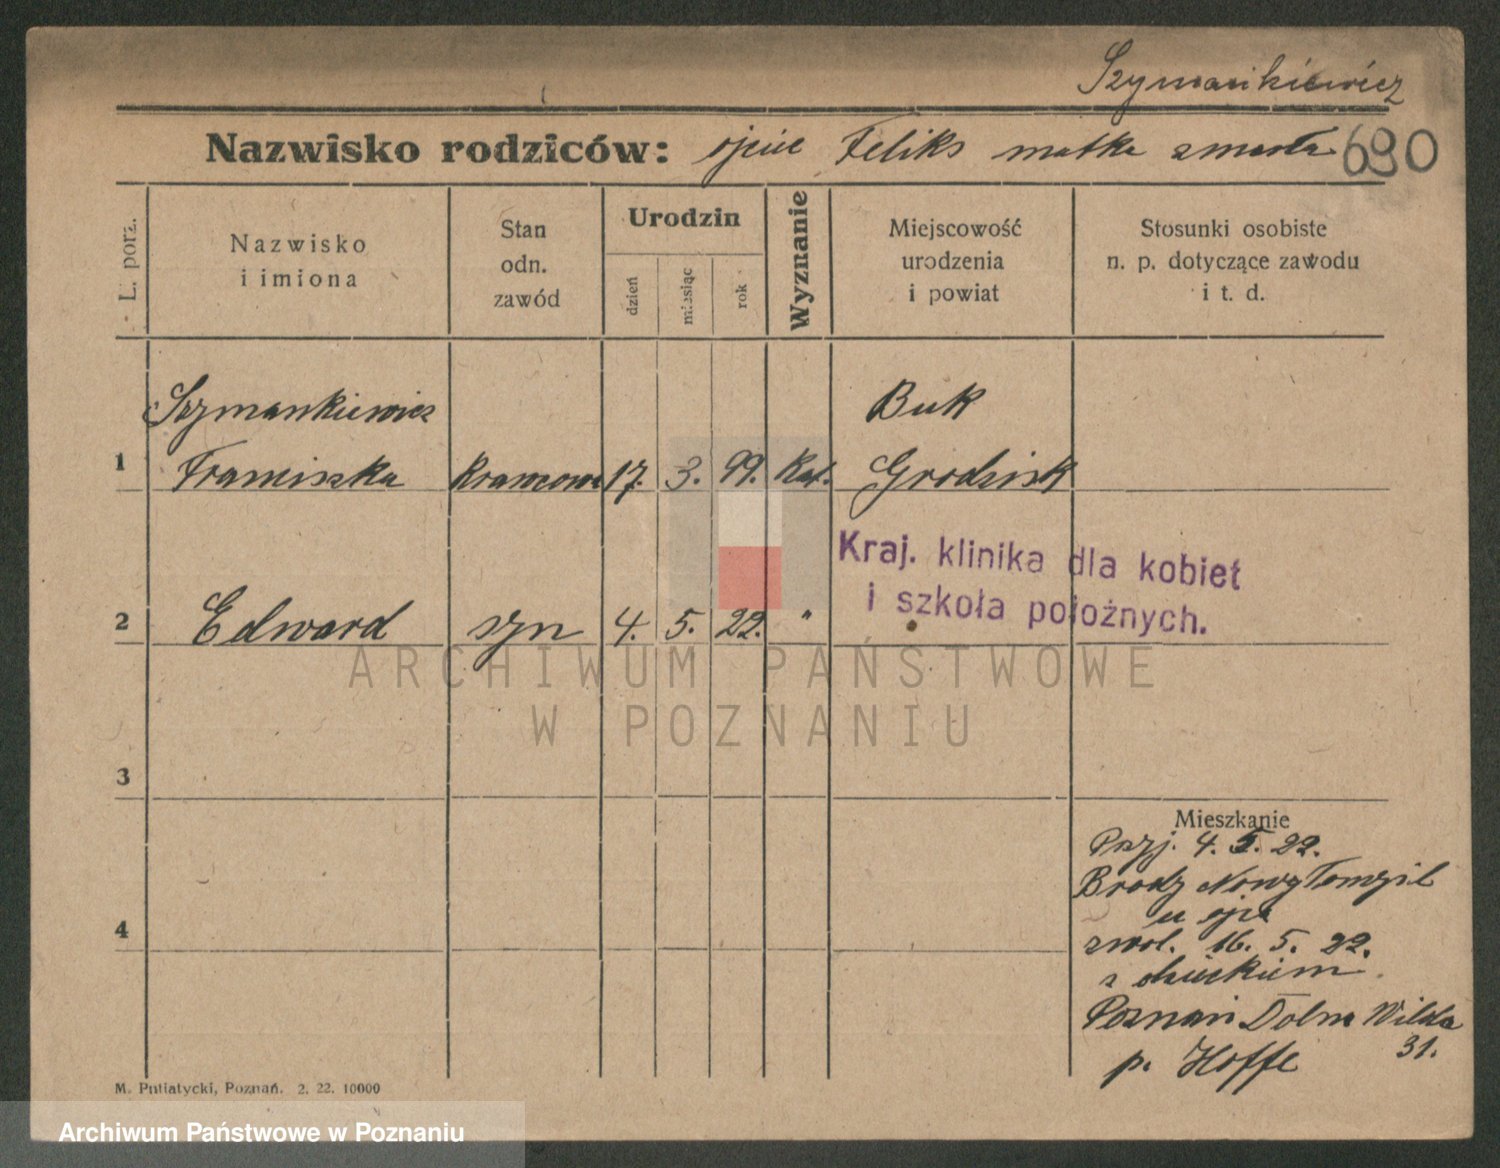 Szymankiewicz
Nazwisko rodziców: ojciec Feliks matka zmarła 690
L. porz.
Nazwisko
i imiona
Stan
odn.
zawód
Urodzin
dzień
miesiąc
rok
Wyznanie
Miejscowość
urodzenia
i powiat
Stosunki osobiste
n. p. dotyczące zawodu
i t. d.
Szymankiewicz Buk
1 Franciszka krawcowa 17. 3. 99. Kat. Grodzisk
Kraj. klinika dla kobiet
i szkoła położnych.
2 Edward syn 4. 5. 22. "
3
4
Mieszkanie
Przj. 4. 5. 22.
Brody Nowy Tomyśl
u ojca
zwol. 16. 5. 22.
z dzieckiem
Poznań Dolna Wilda
31.
p. Hoffe
M. Putiatycki, Poznań. 2. 22. 10000
ARCHIWUM PAŃSTWOWE
W POZNANIU
Archiwum Państwowe w Poznaniu